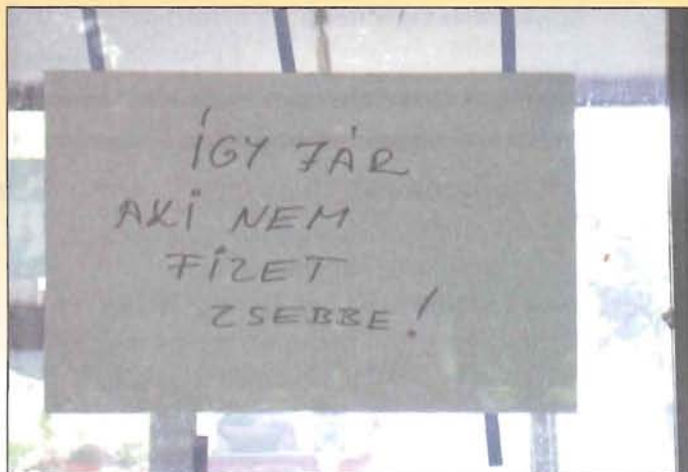 ÍGY JÁR
AKI NEM
FIZET
ZSEBBE!